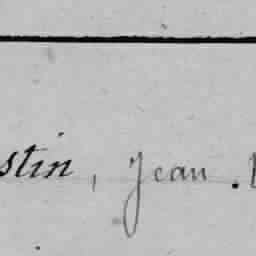 stin, Jean.